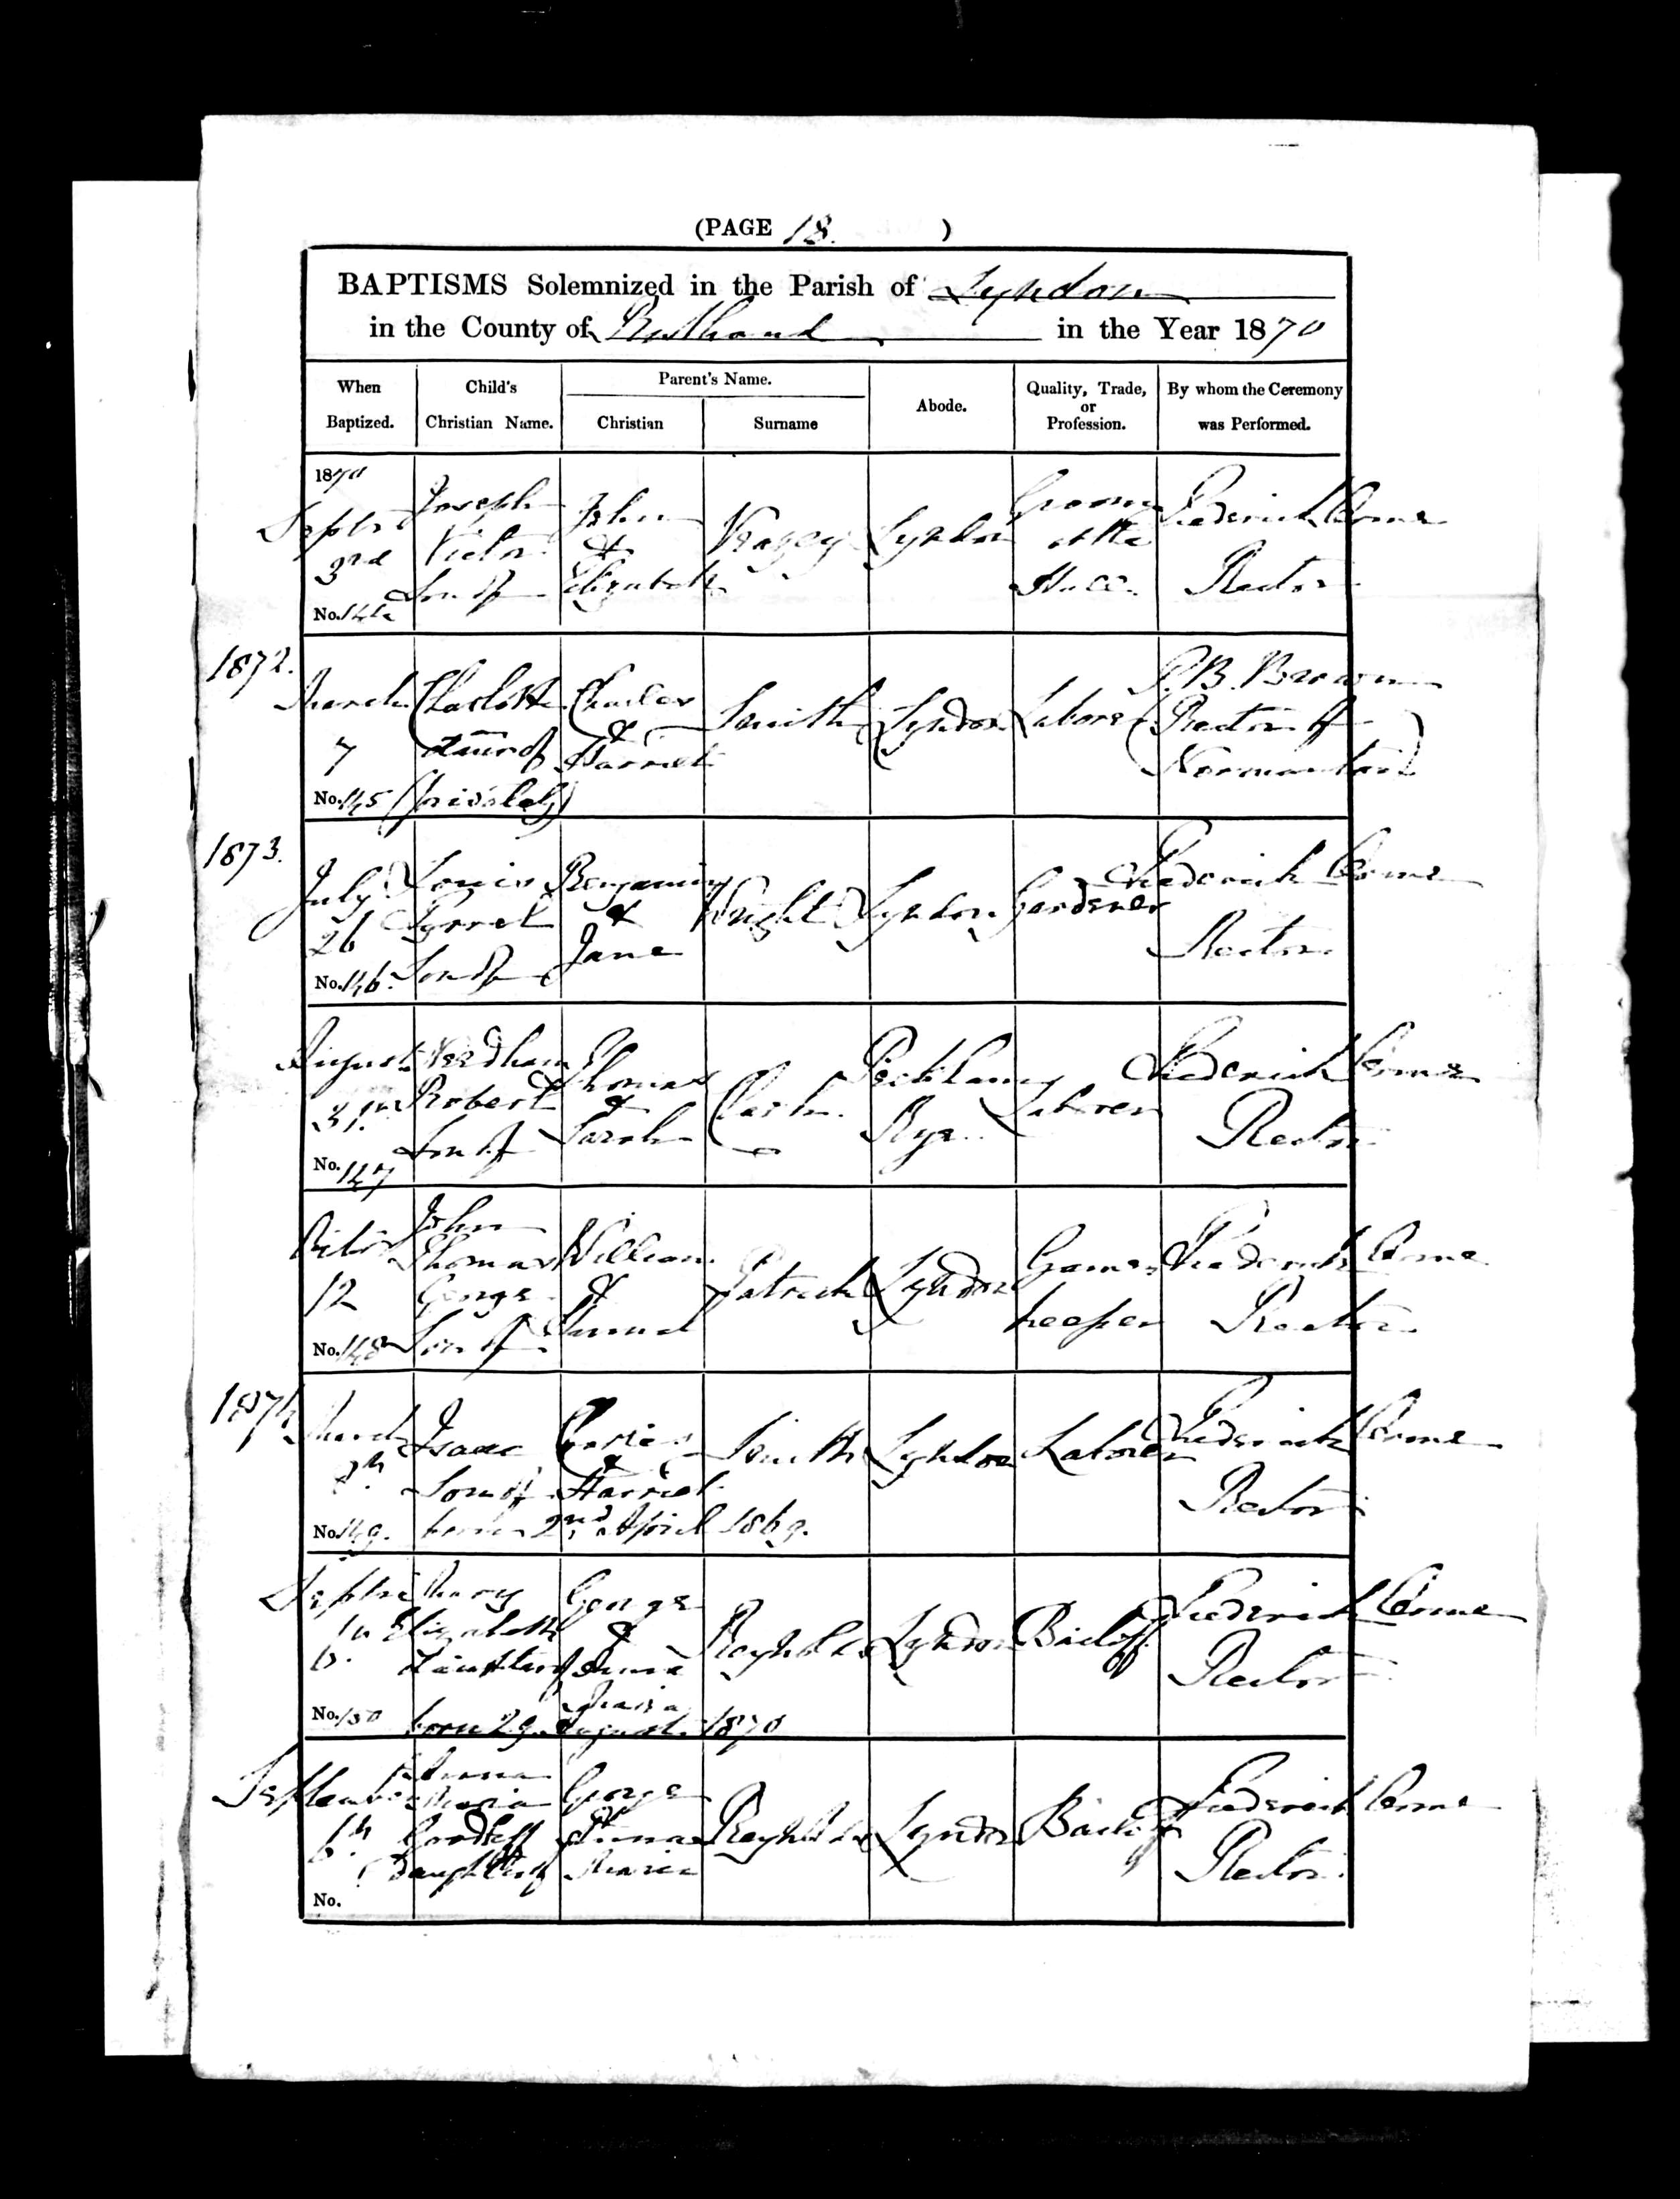 (PAGE 18. )
BAPTISMS Solemnized in the Parish of Lyndon
in the County of Rutland in the Year 1870
When Baptized.
Child's Christian Name.
Parent's Name.
Christian
Surname
Abode.
Quality, Trade, or Profession.
By whom the Ceremony was Performed.
1870
3rd
No. 144
Joseph
Victor
Son of
John
&
Elizabeth
Lyndon
Groom
at the
Hall.
Frederick Orme
Rector
1872.
March
7
No. 145
Charlotte
of
(privately)
Charles
&
Harriet
Smith
Lyndon
Laborer
Brown
(Rector of
Normanton)
1873.
July
26
No. 146.
Louis
Son of
Benjamin
&
Jane
Wright
Lyndon
Gardener
Frederick Orme
Rector
August
31.
No. 147
Needham
Robert
Son of
Thomas
&
Sarah
Peckham
Rye
Laborer
Frederick Orme
Rector
12
No. 148
John
Thomas
George
Son of
William
&
Patrick
Lyndon
Game
keeper
Frederick Orme
Rector
1874
March
No. 149.
Isaac
Son of
&
Harriet
born 2nd April 1869.
Smith
Lyndon
Laborer
Frederick Orme
Rector
6.
No. 150
Mary
Elizabeth
George
&
Maria
born 29 August 1870
Reynolds
Lyndon
Bailiff
Frederick Orme
Rector
6th
No.
Maria
Daughter of
George
Maria
Reynolds
Lyndon
Bailiff
Frederick Orme
Rector